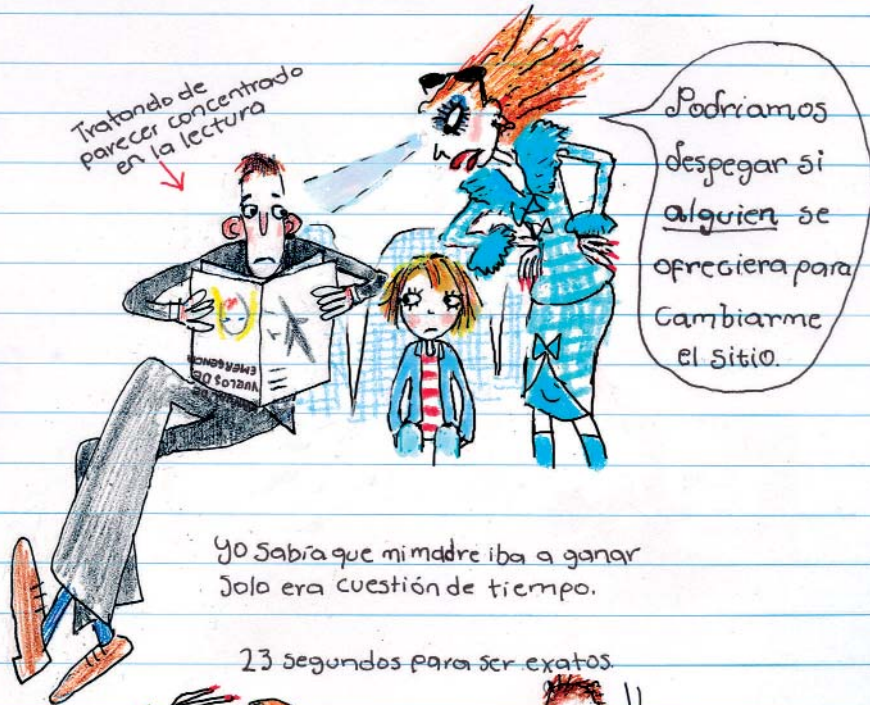 Tratando de
parecer concentrado
en la lectura
Podriamos
despegar si
alguien se
ofreciera para
Cambiarme
el sitio.
VUELOS DE
EMERGENCIA
Yo sabía que mi madre iba a ganar
Solo era cuestión de tiempo.
23 segundos para ser exatos.